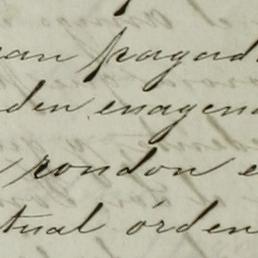 ean pagad
den enagen
rondon e
tual órden